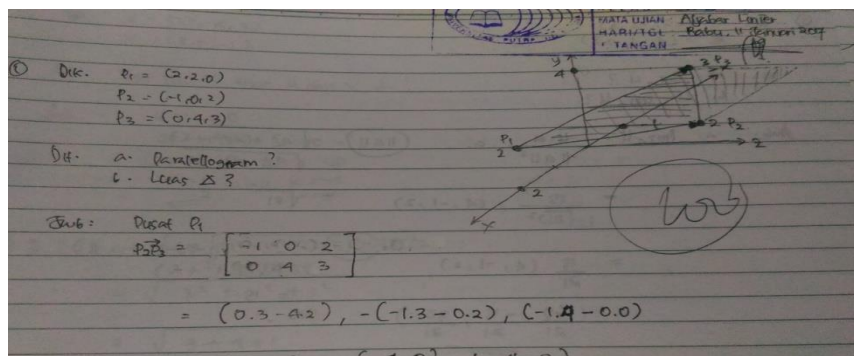 MATA UJIAN : Aljabar Linier
HARI/TGL : Rabu, 11 Januari
TANGAN
① Dik. P₁ = (2,2,0)
P₂ = (-1,0,2)
P₃ = (0,4,3)
Dit. a. Paralellogram ?
b. Luas Δ ?
Jwb : Pusat P₁
P₂P₃ = [ -1 0 2
0 4 3 ]
= (0.3 - 4.2), -(-1.3 - 0.2), (-1.4 - 0.0)
y
4
3 P₃
P₁
2
1
2 P₂
z
2
x
100